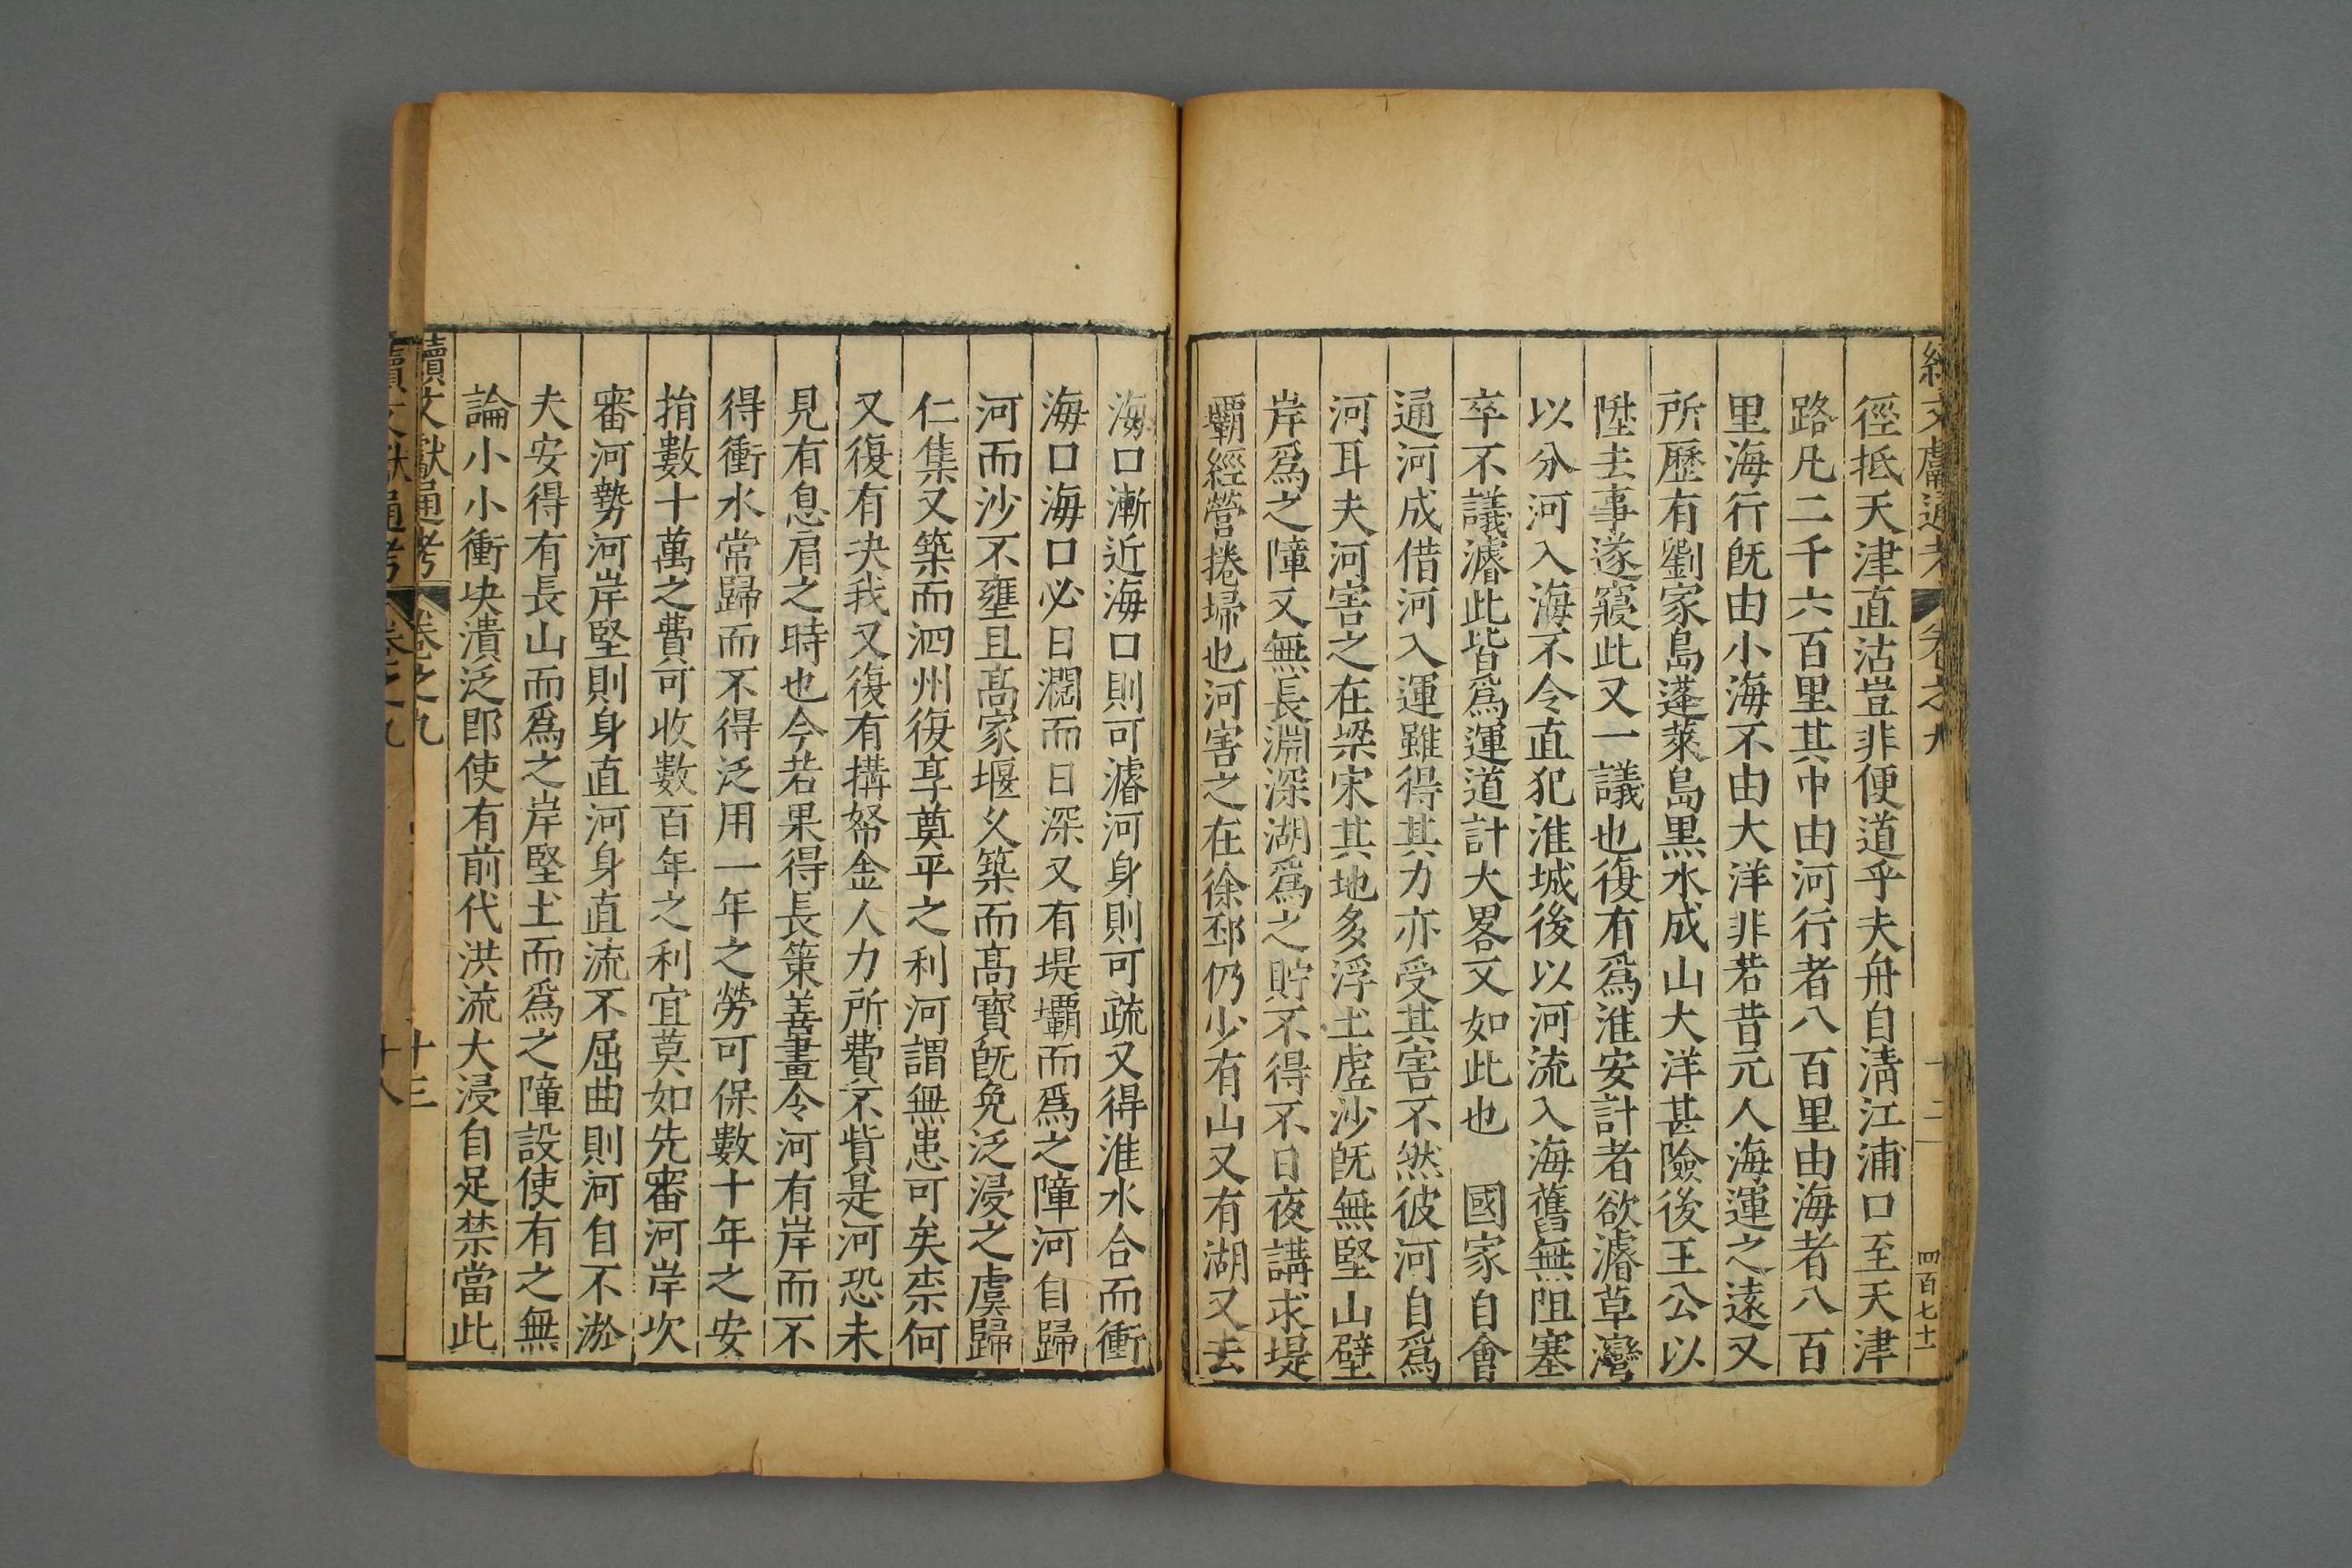 徑抵天津直沽豈非便道乎夫舟自淸江浦口至天津
路凡二千六百里其中由河行者八百里由海者八百
里海行旣由小海不由大洋非若昔元人海運之遠又
所歷有劉家島蓬萊島黒水成山大洋甚險後王公以
陞去事遂寢此又一議也復有爲淮安計者欲濬草灣
以分河入海不令直犯淮城後以河流入海舊無阻塞
卒不議濬此皆爲運道計大畧又如此也　國家自會
通河成借河入運雖得其力亦受其害不然彼河自爲
河耳夫河害之在梁宋其地多浮土虛沙旣無堅山壁
岸爲之障又無長淵深湖爲之貯不得不日夜講求堤
壩經營捲埽也河害之在徐邳仍少有山又有湖又去
四百七十
海口漸近海口則可濬河身則可疏又得淮水合而衝
海口海口必日濶而日深又有堤壩而爲之障河自歸
河而沙不壅且高家堰乆築而高寳旣免泛浸之虞歸
仁集又築而泗州復享奠平之利河謂無患可矣柰何
又復有决我又復有搆帑金人力所費不貲是河恐未
見有息肩之時也今若果得長策善畫令河有岸而不
得衝水常歸而不得泛用一年之勞可保數十年之安
捐數十萬之費可收數百年之利宜莫如先審河岸次
審河勢河岸堅則身直河身直流不屈曲則河自不淤
夫安得有長山而爲之岸堅土而爲之障設使有之無
論小小衝决潰泛卽使有前代洪流大浸自足禁當此
續文獻通考　卷之九　十三